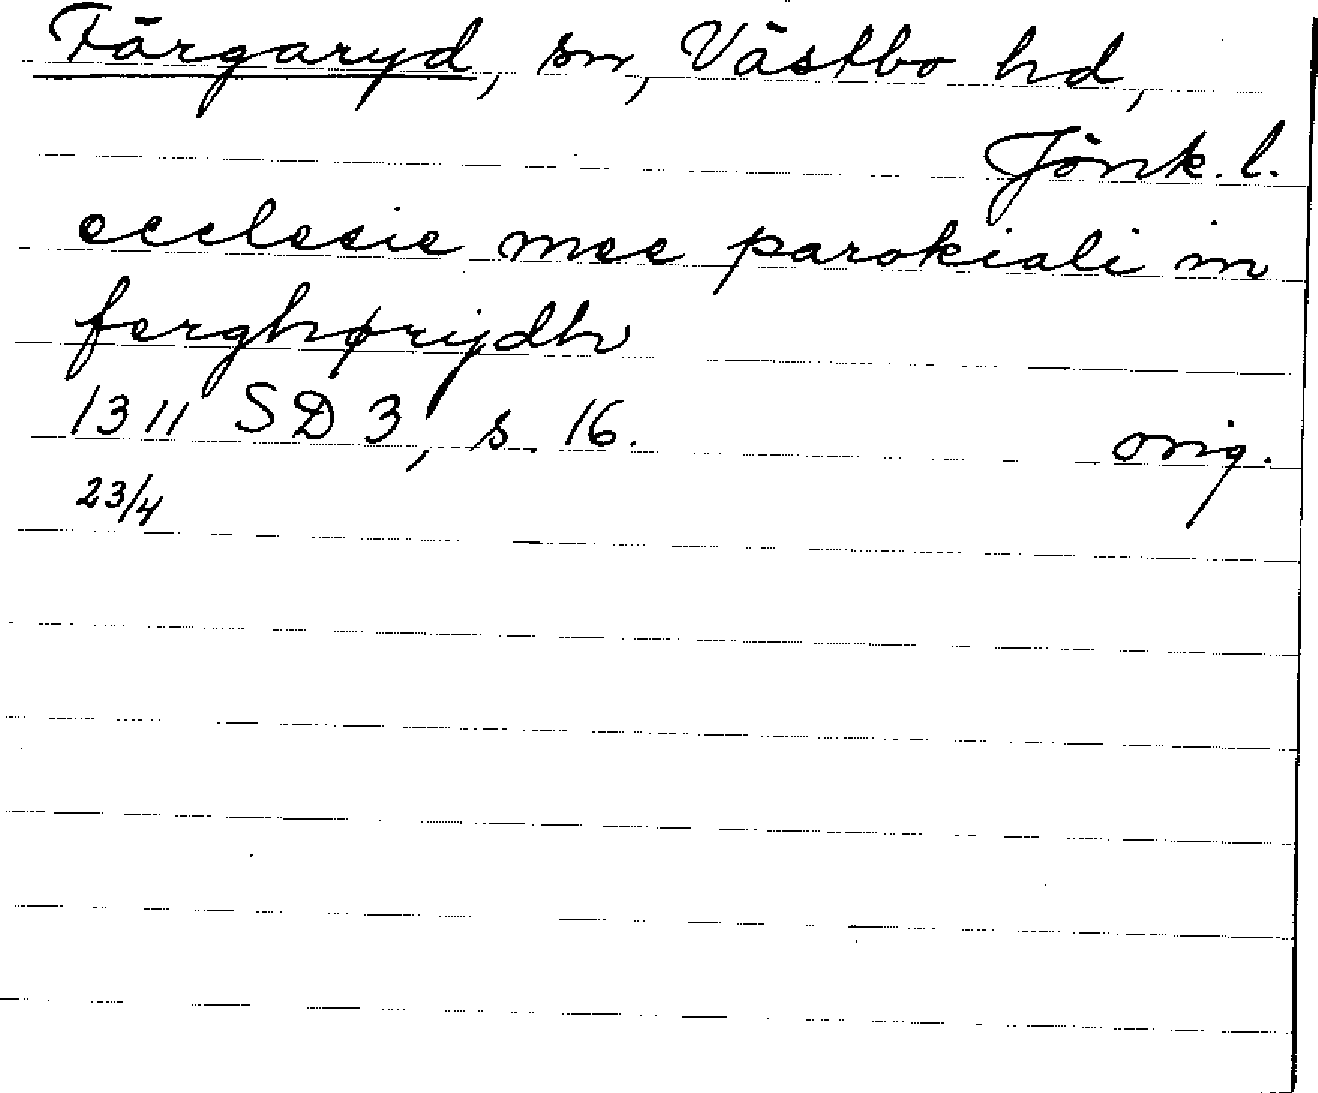 Färgaryd, sn, Västbo hd,
Jönk. l.
ecclesie mee parokiali in
ferghørijdh
1311 SD 3, s. 16. orig.
23/4